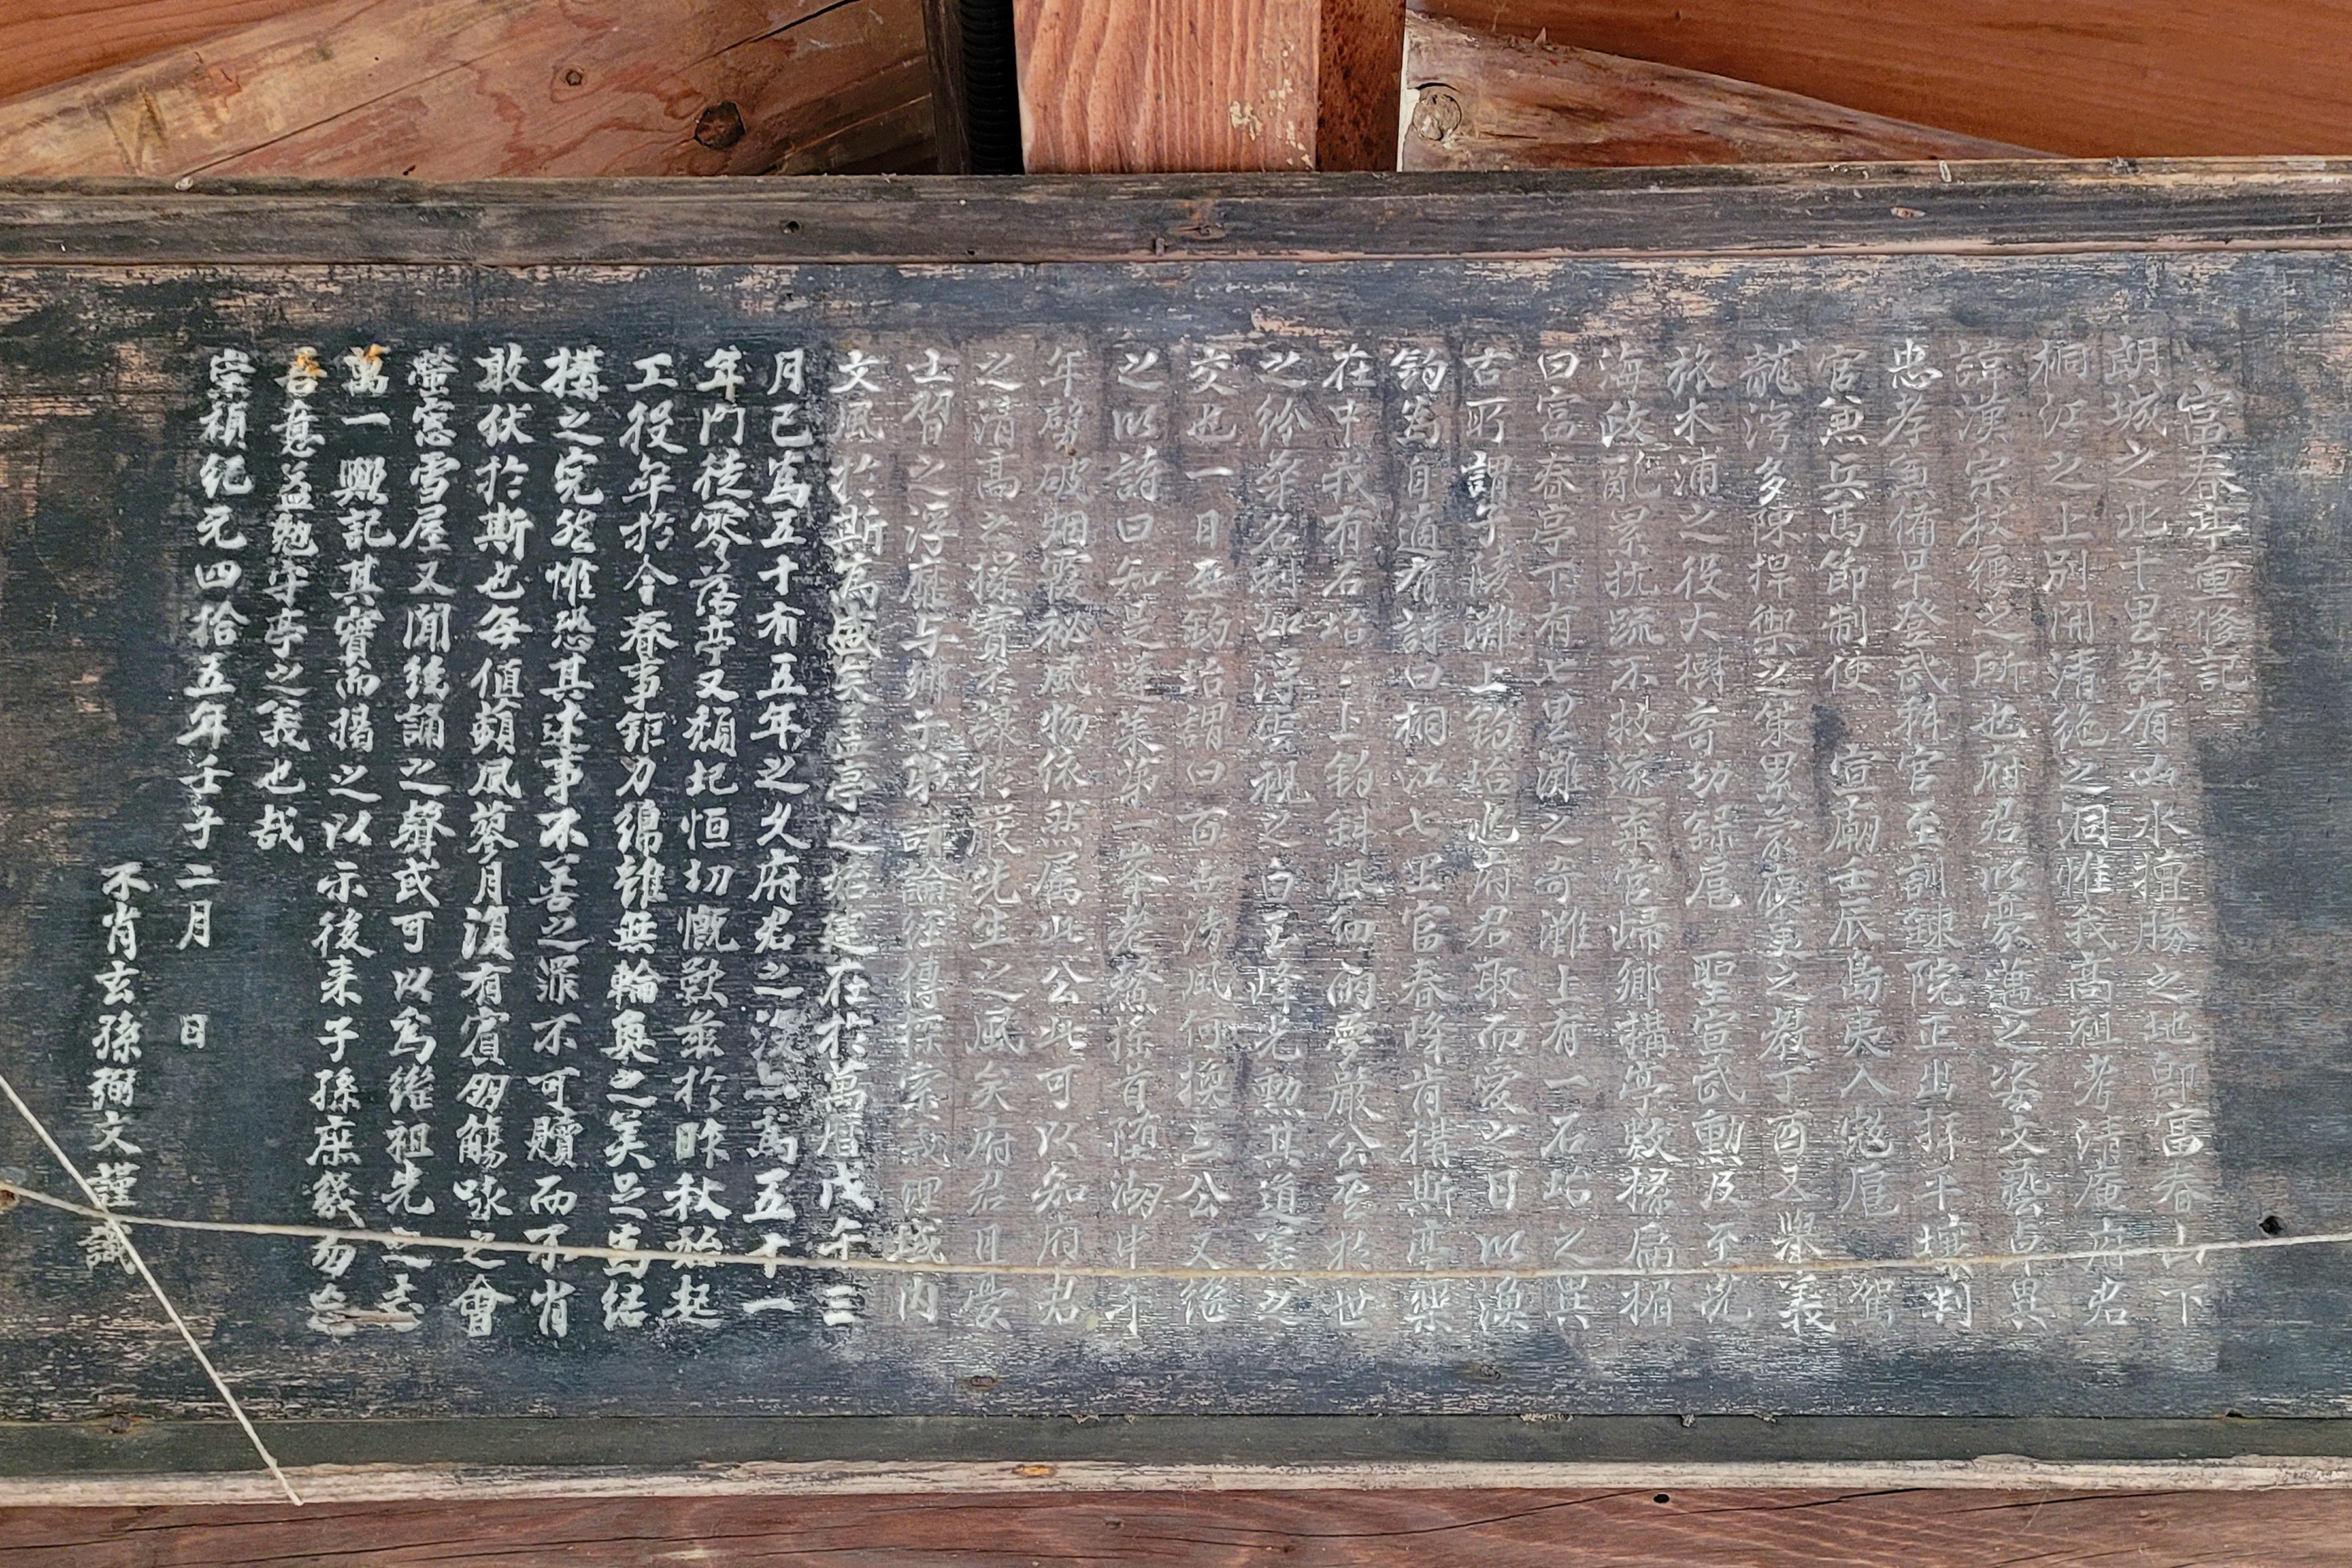 富春亭重修記
朗城之北十里許有山水擅勝之地即富春山下
桐江之上別開清絶之洞惟我高祖考清庵府君
諱漢宗杖屨之所也府君以豪邁之姿文藝占異
忠孝兼備早登武科官至訓鍊院正出拜平壤判
官兼兵馬節制使宣廟壬辰島夷入寇扈駕
龍灣多陳捍禦之策累蒙之教丁酉又擧義
旅木浦之役大樹奇功錄扈聖宣武勳及至光
海政亂累抗疏不救遂棄官歸鄉構亭數椽扁楣
曰富春亭下有七里灘之奇灘上有一石此之異
古所謂子陵灘上釣坮此府君取而愛之日以漁
釣爲自適有詩曰桐江七里富春降肯構斯亭樂
在中我有石坮坮上釣斜風細雨夢嚴公至於世
之紛紛名利如浮雲視之白玉峰光勲其道義之
交也一日至釣坮謂曰百世清風何換三公又繼
之以詩曰知是蓬萊第一峯老鰲搔首墮湖中千
年劈破烟霞秘風物依然屬此公此可以知府君
之清高之操實不讓於嚴先生之風矣府君且愛
士習之浮靡与鄉子弟討論經傳探索義理域內
文風於斯爲盛矣盖亭之始建在於萬曆戊午三
月已爲五十有五年之久府君之沒為五十一
年門徒零落亭又頹圮恒切慨歎玆於昨秋始起
工役年於今春事鉅力綿雖無輪奐之美足爲結
構之完然惟恐其述事不善之罪不可贖而不肖
敢伏於斯也每値蘋風蓼月復有賓朋觴咏之會
螢窓雪屋又聞絃誦之聲或可以爲繼祖先之志
萬一興記其實而揭之以示後来子孫庶幾勿忘
吾意益勉守亭之義也哉
崇禎紀元四拾五年壬子二月 日
不肖玄孫弼文謹識